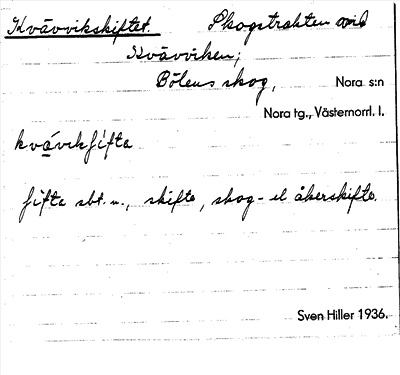 Kvävvikskiftet. Skogstrakten vid
Kvävviken;
Bölens skog, Nora s:n
Nora tg., Västernorrl. l.
kvävikʃifta
ʃifta sbt. n., skifte, skog- el åkerskifte.
Sven Hiller 1936.